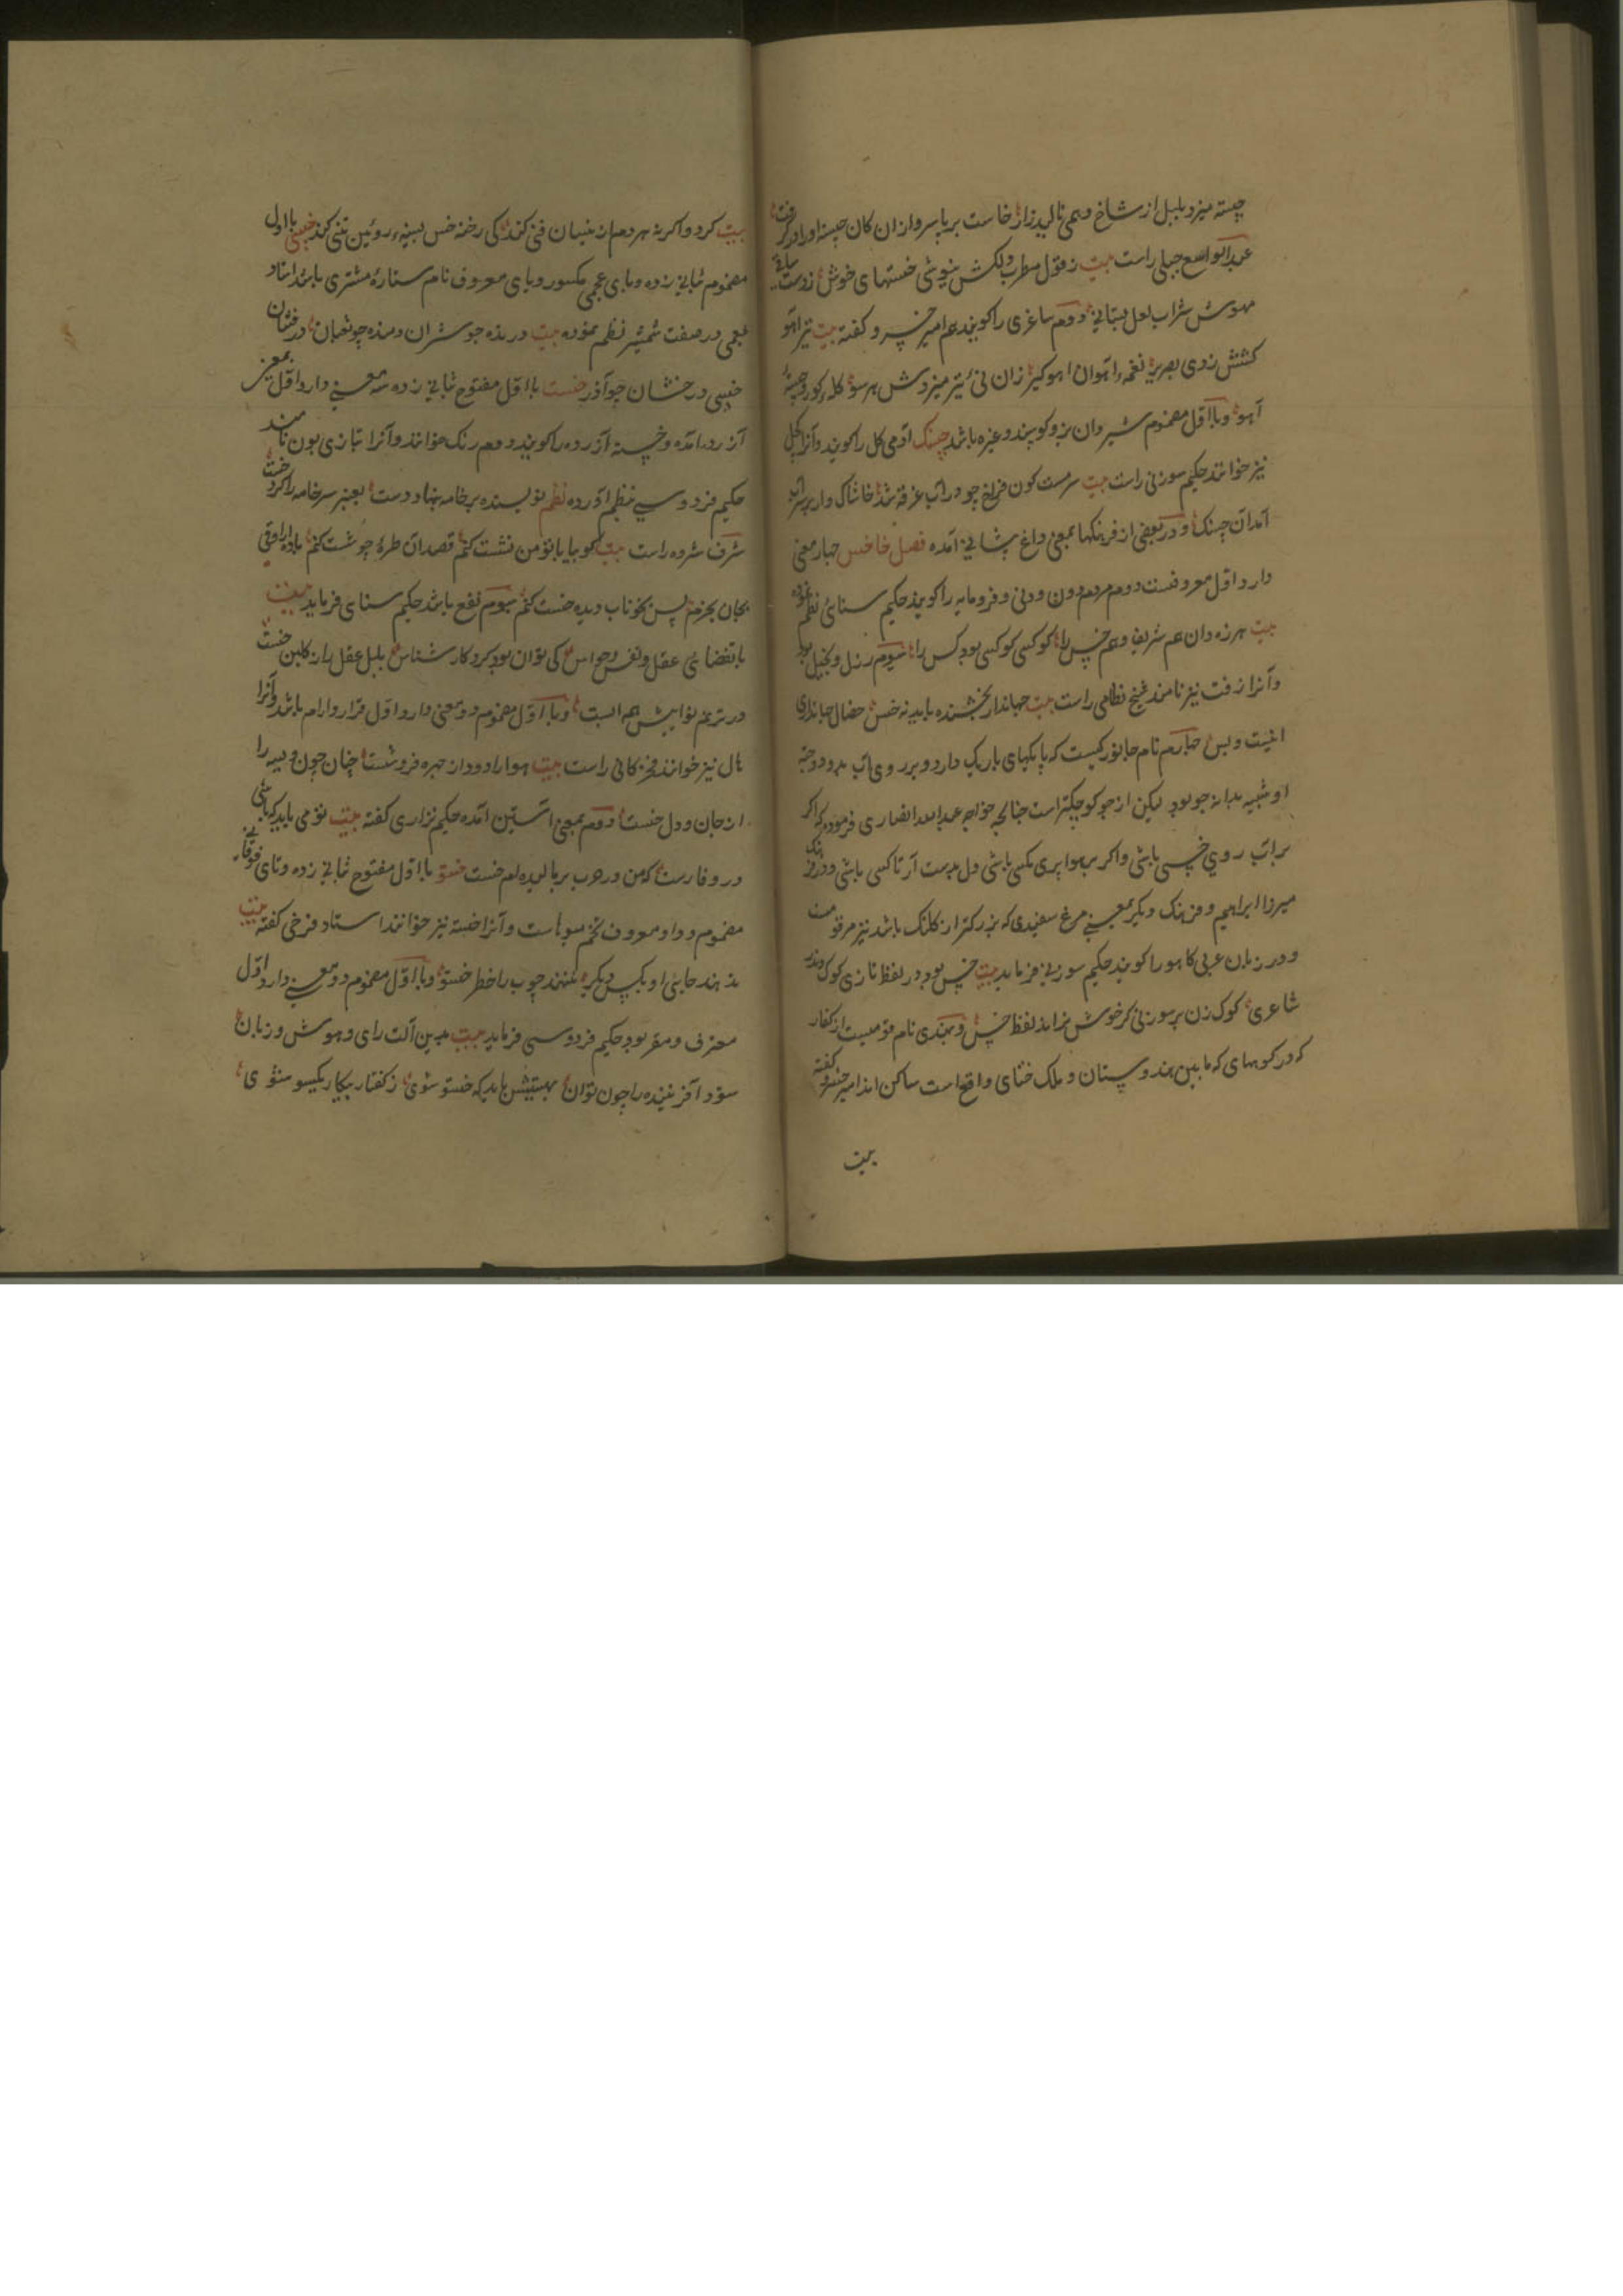 چسته میزد بلبل از شاخ و همی نالید زار خاست بر پا سرو از ان کان چسته او را در گرفت
عبد الواسع جبلی راست بیت ز قول مطرب دلکش نیوشی خستهای خوش ز دست ساقی
مهوش شراب لعل بستانی دوم ساغری را کویند هم امیر خسرو کفته بیت تیر اهو
کشتش زدی بصریر نغمهٔ اهوان اهو کیر زان نی تیر میزدش هر سو کلهٔ کور و چستهٔ
آهو و با اول مضموم شیردان بز و کوسپند و غیره باشد چسنک ادمی کل را کویند و آنرا کچل
نیز خوانند حکیم سوزنی راست بیت سرمست کون فراخ چو در آب غرقه شد خاشاک وار بر سر آب
آمد آن چسنک و در بعضی از فرهنکها بمعنی داغ پشانی آمده فصل خا خس چهار معنی
دارد اول معروفست دوم مردم دون و دنی و فرومایه را کویند حکیم سنائی نظم نموده
بیت هرزه دان هم شریف و هم خس را کو کسی کو کسی بود کس را سیوم رذل و بخیل بود
و آنرا زفت نیز نامند شیخ نظامی راست بیت جهاندار بخشنده باید نه خس خصال جهانداری
اینست و بس چهارم نام جانورکیست که پایکهای باریک دارد و بر روی آب میدود و جثه
او شبیه بدانه جو بود لیکن از جو کوچکتر است چنانچه خواجه عبد الله انصاری فرموده که اکر
بر اب روی خسی باشی و اکر بر هوا پری مکسی باشی دل بدست آر تا کسی باشی و در فرهنک
میرزا ابراهیم و فرهنک دیکر بمعنی مرغ سفیدی که بزرکتر از کلنک باشد نیز مرقومست
و در زبان عربی کاهو را کویند حکیم سوزنی فرماید بیت خس بود در لفظ تازی کوک و در
شاعری کوک زن بر سوزنی کر خوش نراند لفظ خس و بهندی نام قومیست از کفار
که در کوههای که ما بین هندوستان و ملک ختای واقع است ساکن اند امیر خسرو کفته
بیت
بیت کرد و اکر نه هر دم از منیان فنی کند کی رخنه خس بسینهٔ روئین تنی کند خسپی با اول
مضموم بثانی زده و بای عجمی مکسور و یای معروف نام ستاره مشتری باشد استاد
در صفت شمشیر نظم نموده بیت درنده جو شیران دمنده چو ثعبان درفشان
خسپی درخشان چو آذر خست با اول مفتوح ثانی زده سه معنی دارد اول بمعنی
آزرد امده و خسته آزرده را کویند دوم رنک خوانند و آنرا تبازی یون نامند
حکیم فردوسی بنظم آورده نظم نویسنده بر خامه بنهاد دست بعنبر سر خامه را کرد خست
شرف شفروه راست بیت کو بیا با تو من نشست کنم قصد ان طرهٔ چو شست کنم بادهٔ راوقی
بجان بخرم پس بخوناب دیده خست کنم سیوم نفع باشد حکیم سنای فرماید بیت
باتقضای عقل و نفس و حواس کی توان بود کردکار شناس بلبل عقل را ز کلبن خست
در ترنم نوایش همه الست و با اول مضموم دو معنی دارد اول قرار و ارام باشد و آنرا
هال نیز خوانند فخر کانی راست بیت هوا را دود از چهره فروشست چنان چون ویسه را
از جان و دل خست دوم بمعنی استین آمده حکیم نزاری کفته بیت تو می باید که باشی
در وفا رست که من در خوب بر بالیده ام خست خستو با اول مفتوح ثانی زده و تای فوقانی
مضموم و واو معروف تخم میوهاست و آنرا خسته نیز خوانند استاد فرخی کفته بیت
معترف و مقر بود حکیم فردوسی فرماید بیت بدین آلت رای و هوش و زبان
ستود آفریننده را چون توان بهستیش باید که خستو شوی ز کفتار بیکار یکسو شوی